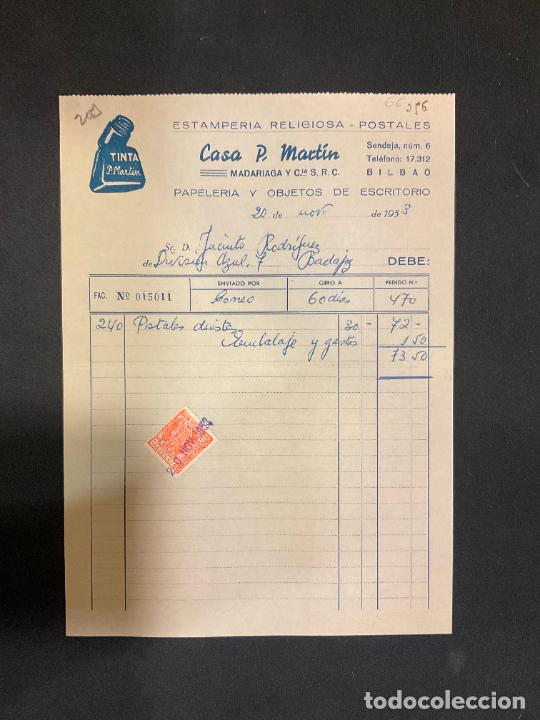 209
66 356
ESTAMPERIA RELIGIOSA - POSTALES
TINTA
P. Martín
Casa P. Martín
MADARIAGA Y C.IA S. R. C.
Sendeja, núm. 6
Teléfono: 17.312
BILBAO
PAPELERIA Y OBJETOS DE ESCRITORIO
20 de novi de 1953
Sr. D. Jacinto Rodríguez
de División Azul. 7 Badajoz DEBE:
FAC. Nº 015011 ENVIADO POR Correo GIRO A 60 días PEDIDO N.º 470
240 Postales 30- 72-
Embalaje y gastos 1 50
73 50
20 NOV 1953
todocoleccion
todocoleccion.net